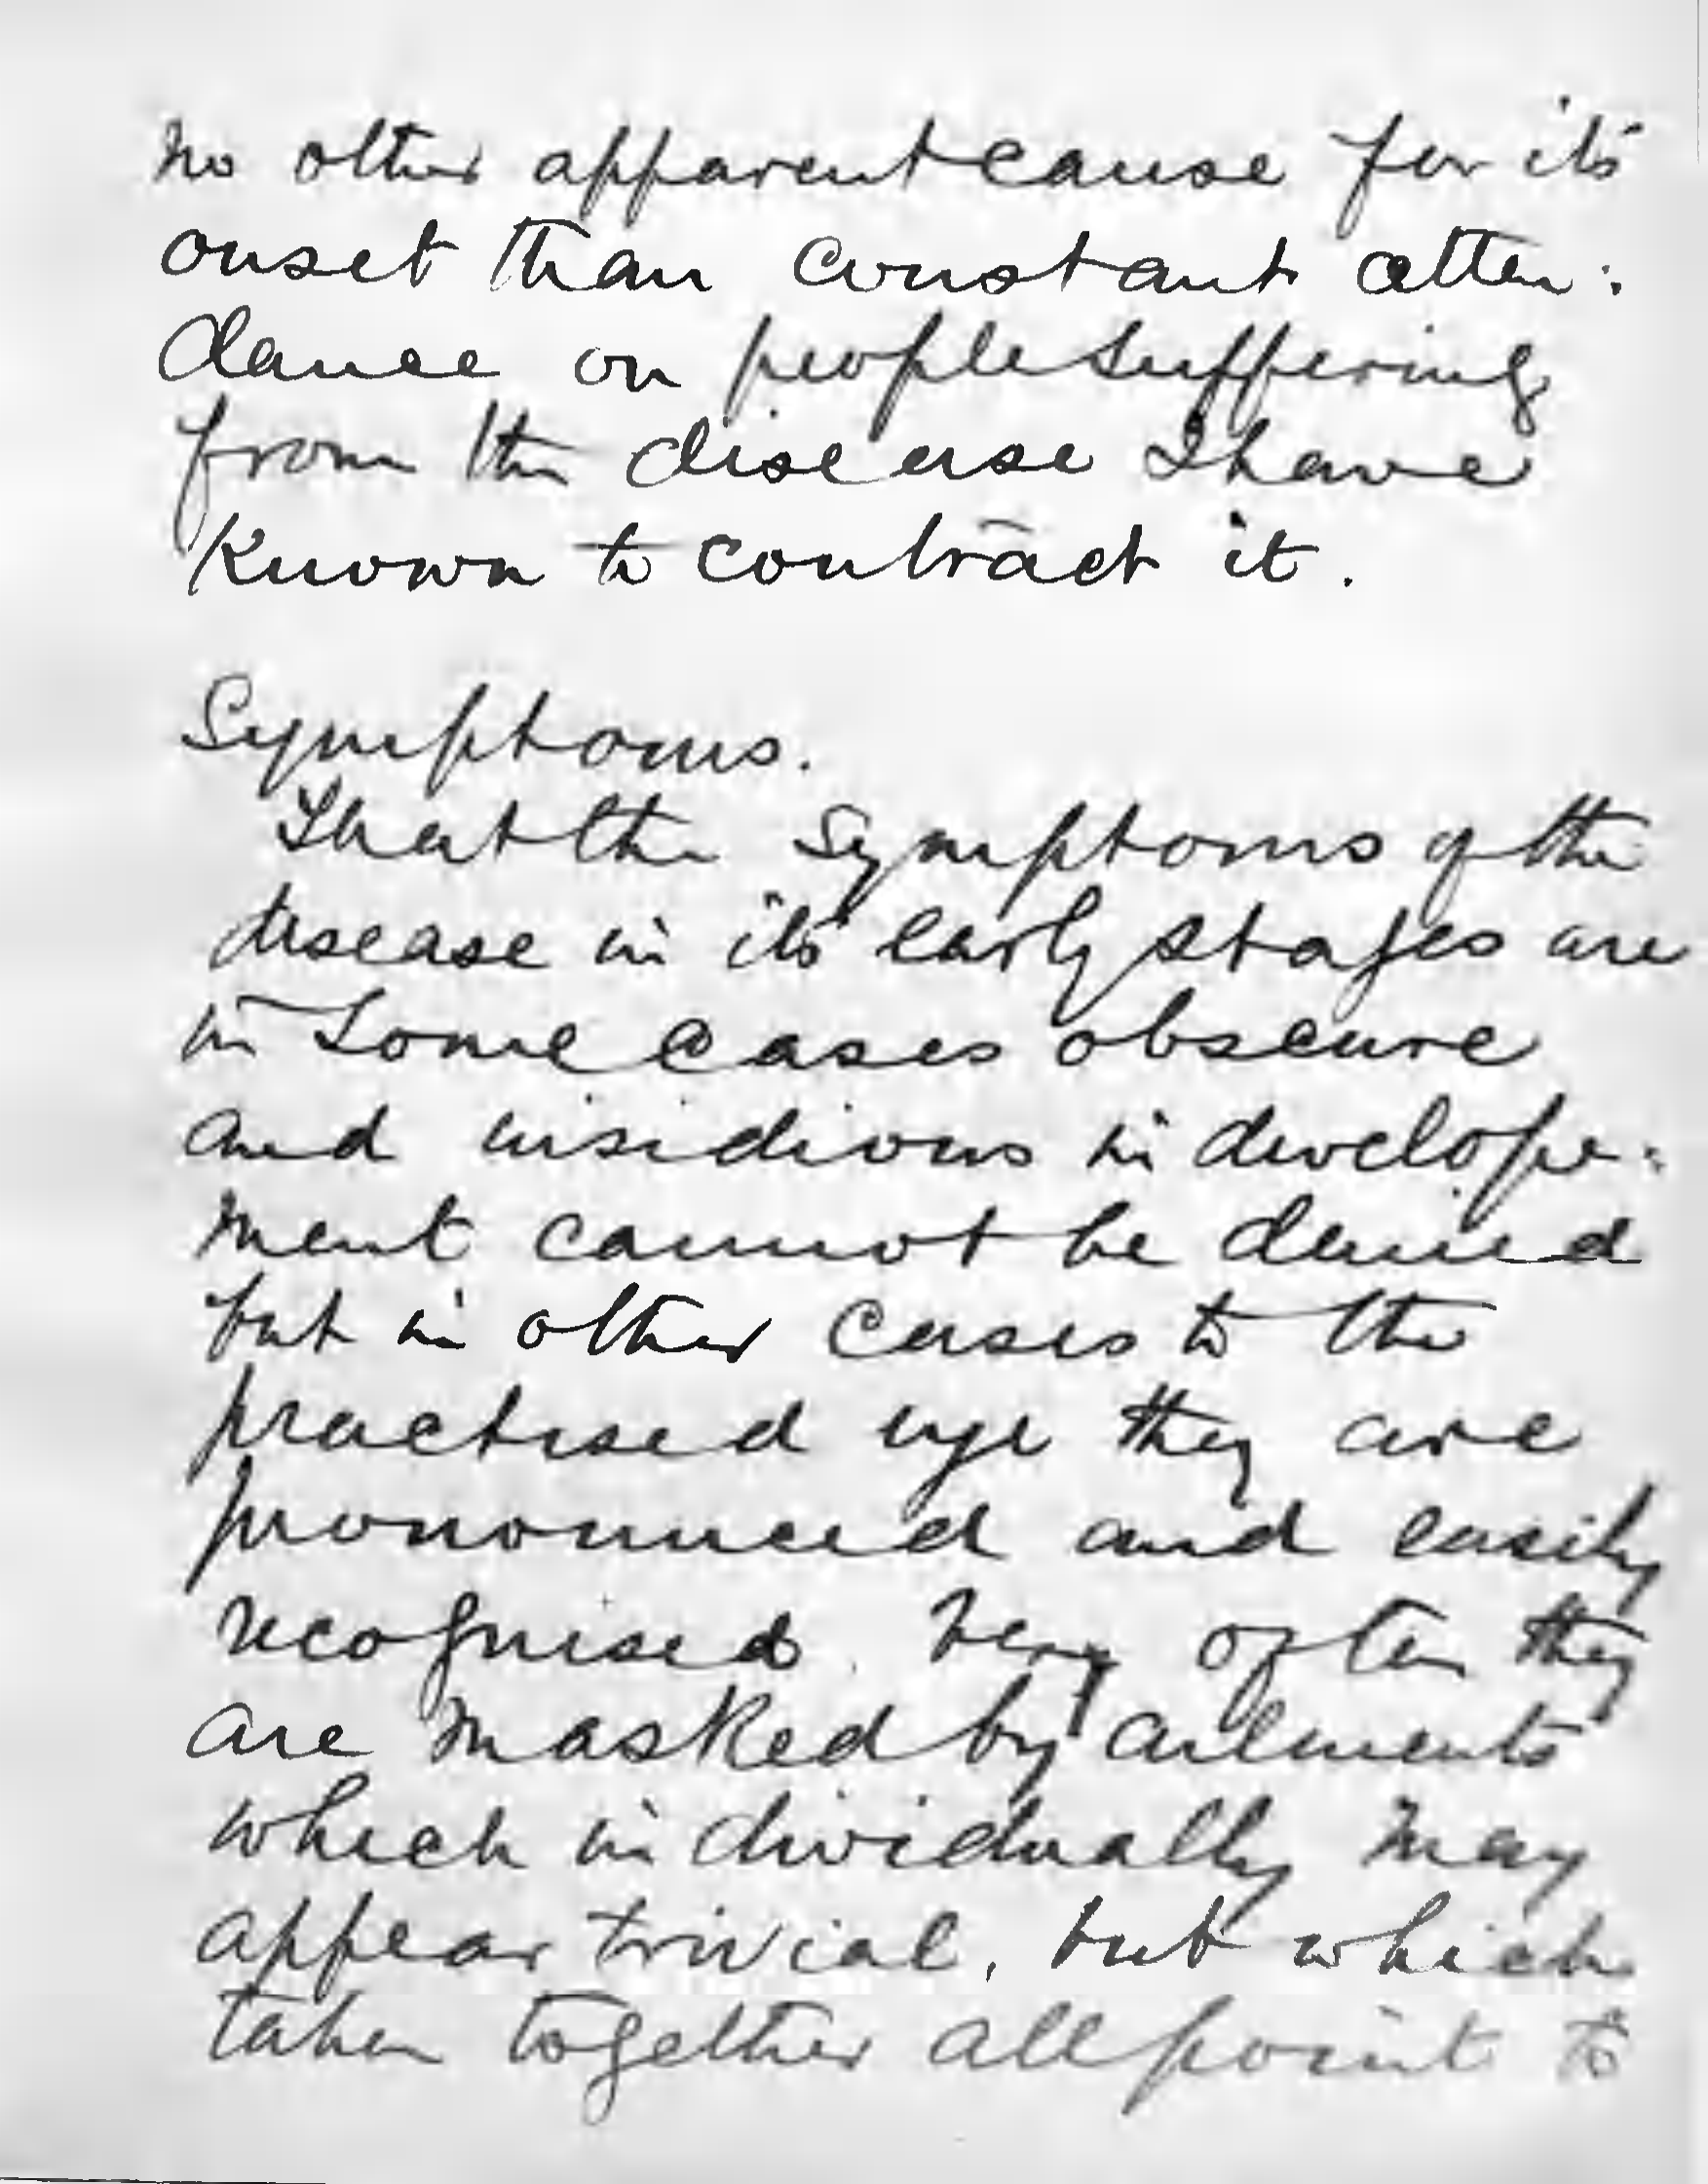 no other apparent cause for its
onset than constant atten:
dance on people suffering
from the disease I have
known to contract it.
Symptoms.
That the symptoms of the
disease in its early stages are
in some cases obscure
and insidious in develope:
ment cannot be denied
but in other cases to the
practised eye they are
pronounced and easily
recognised. Very often they
are masked by ailments
which individually may
appear trivial, but which
taken together all point to